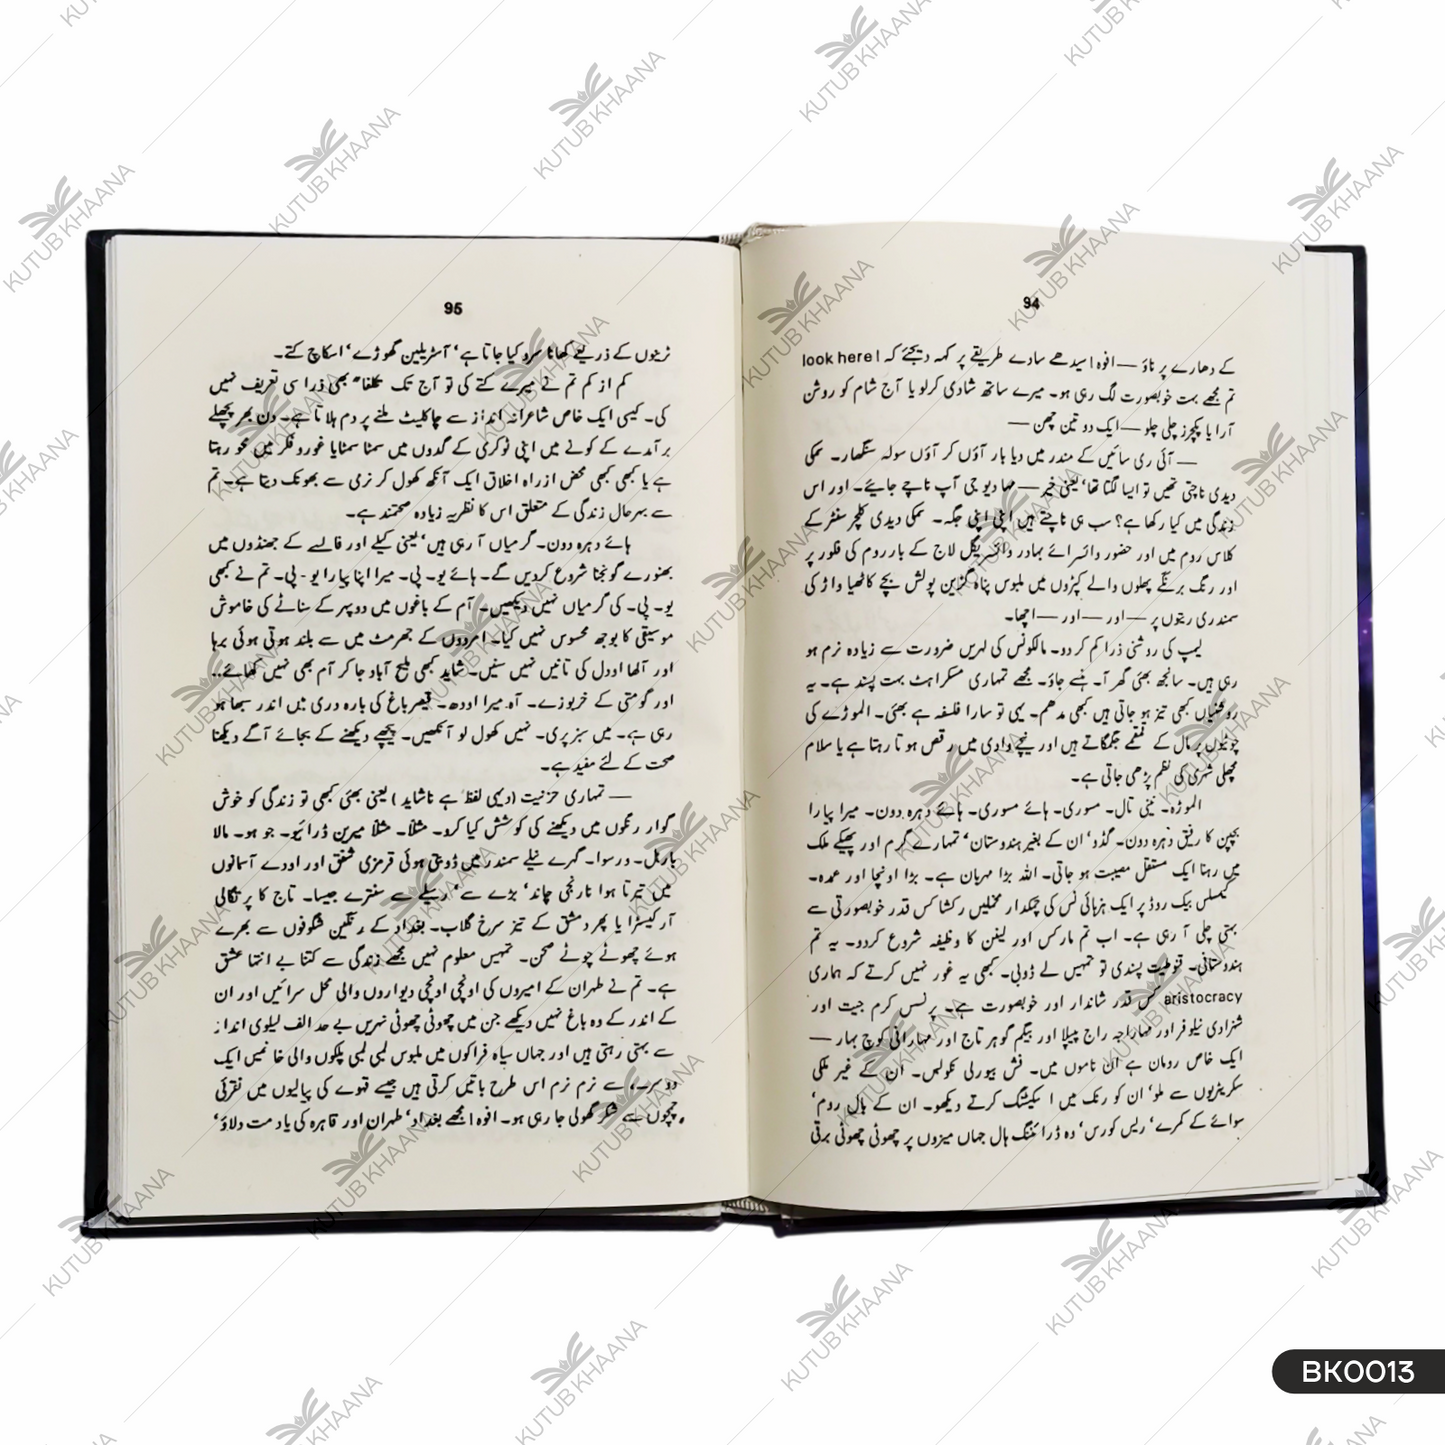 94
کے دھارے پر ناؤ —افوہ! سیدھے سادے طریقے پر کہہ دیجئے کہ look here!
تم مجھے بہت خوبصورت لگ رہی ہو۔ میرے ساتھ شادی کرلو یا آج شام کو روشن
آرا یا پکچرز چلی چلو —ایک دو تین چھن —
— آئی ری سائیں کے مندر میں دیا بار آؤں کر آؤں سولہ سنگھار۔ نمکی
دیدی ناچتی تھیں تو ایسا لگتا تھا، یعنی خیر — مہا دیو جی آپ ناچے جایئے۔ اور اس
زندگی میں کیا رکھا ہے؟ سب ہی ناچتے ہیں اپنی اپنی جگہ۔ نمکی دیدی کلچر سنٹر کے
کلاس روم میں اور حضور وائسرائے بہادر وائسریگل لاج کے بار روم کی فلور پر
اور رنگ برنگے پھلوں والے کپڑوں میں ملبوس پناہ گزین پولش بچے کاٹھیا واڑ کی
سمندری ریتوں پر —اور —اور —اچھا۔
لیمپ کی روشنی ذرا کم کر دو۔ مالکونس کی لہریں ضرورت سے زیادہ نرم ہو
رہی ہیں۔ سانجھ بھئی گھر آ۔ ہنسے جاؤ۔ مجھے تمہاری مسکراہٹ بہت پسند ہے۔ یہ
روشنیاں کبھی تیز ہو جاتی ہیں کبھی مدھم۔ یہی تو سارا فلسفہ ہے بھئی۔ الموڑے کی
چوٹیوں پر مال کے قمقمے جگمگاتے ہیں اور نیچے وادی میں رقص ہوتا رہتا ہے یا سلام
مچھلی شہری کی نظم پڑھی جاتی ہے۔
الموڑہ۔ نینی تال۔ مسوری۔ ہائے مسوری۔ ہائے دہرہ دون۔ میرا پیارا
بچپن کا رفیق دہرہ دون۔ گڈو، ان کے بغیر ہندوستان، تمہارے گرم اور پھیکے ملک
میں رہنا ایک مستقل مصیبت ہو جاتی۔ اللہ بڑا مہربان ہے۔ بڑا اونچا اور عمدہ۔
کیملس بیک روڈ پر ایک ہزہائی نس کی چمکدار مخملیں رکشا کس قدر خوبصورتی سے
بہتی چلی آ رہی ہے۔ اب تم مارکس اور لینن کا وظیفہ شروع کردو۔ یہ تم
ہندوستانی۔ قنوطیت پسندی تو تمہیں لے ڈوبی۔ کبھی یہ غور نہیں کرتے کہ ہماری
aristocracy کس قدر شاندار اور خوبصورت ہے۔ پرنسس کرم جیت اور
شہزادی نیلوفر اور مہاراجہ راج پیپلا اور بیگم گوہر تاج اور مہارانی کوچ بہار —
ایک خاص رومان ہے ان ناموں میں۔ فش بیورلی نکولس۔ ان کے غیر ملکی
سکریٹریوں سے ملو، ان کو رنک میں اسکیٹنگ کرتے دیکھو۔ ان کے بال روم،
سوائے کے کمرے، ریس کورس، وہ ڈرائننگ ہال جہاں میزوں پر چھوٹی چھوٹی برقی
95
ٹرینوں کے ذریعے کھانا سرو کیا جاتا ہے، آسٹریلین گھوڑے، اسکاچ کتے۔
کم از کم تم نے میرے کتے کی تو آج تک تکلفاً بھی ذرا سی تعریف نہیں
کی۔ کیسی ایک خاص شاعرانہ انداز سے چاکلیٹ ملنے پر دم ہلاتا ہے۔ دن بھر پچھلے
برآمدے کے کونے میں اپنی ٹوکری کے گدوں میں سمٹا سمٹایا غور و فکر میں محو رہتا
ہے یا کبھی کبھی محض ازراہ اخلاق ایک آنکھ کھول کر نرمی سے بھونک دیتا ہے۔ تم
سے بہر حال زندگی کے متعلق اس کا نظریہ زیادہ صحتمند ہے۔
ہائے دہرہ دون۔ گرمیاں آ رہی ہیں، یعنی کیلے اور فالسے کے جھنڈوں میں
بھنورے گونجنا شروع کردیں گے۔ ہائے یو۔ پی۔ میرا اپنا پیارا یو۔ پی۔ تم نے کبھی
یو۔ پی۔ کی گرمیاں نہیں دیکھیں۔ آم کے باغوں میں دوپہر کے سناٹے کی خاموش
موسیقی کا بوجھ محسوس نہیں کیا۔ امردوں کے جھرمٹ میں سے بلند ہوتی ہوئی برہا
اور آلھا اودل کی تانیں نہیں سنیں۔ شاید کبھی ملیح آباد جا کر آم بھی نہیں کھائے..
اور گومتی کے خربوزے۔ آہ میرا اودھ۔ قیصر باغ کی بارہ دری میں اندر سبھا ہو
رہی ہے۔ میں سبز پری۔ نہیں کھول لو آنکھیں۔ پیچھے دیکھنے کے بجائے آگے دیکھنا
صحت کے لئے مفید ہے۔
— تمہاری حزنیت (دیہی لفظ ہے ناشاید) یعنی بھئی کبھی تو زندگی کو خوش
گوار رنگوں میں دیکھنے کی کوشش کیا کرو۔ مثلاً۔ مثلاً میرین ڈرائیو۔ جو ہو۔ مالا
بارہل۔ ورسوا۔ گہرے نیلے سمندر میں ڈوبتی ہوئی قرمزی شفق اور اودے آسمانوں
میں تیرتا ہوا نارنجی چاند، بڑے سے، رسیلے سے سنترے جیسا۔ تاج کا پرتگالی
آرکیسٹرا یا پھر دمشق کے تیز سرخ گلاب۔ بغداد کے رنگین شگوفوں سے بھرے
ہوئے چھوٹے چھوٹے صحن۔ تمہیں معلوم نہیں مجھے زندگی سے کتنا بے انتہا عشق
ہے۔ تم نے طہران کے امیروں کی اونچی اونچی دیواروں والی محل سرائیں اور ان
کے اندر کے وہ باغ نہیں دیکھے جن میں چھوٹی چھوٹی نہریں بے حد الف لیلوی انداز
سے بہتی رہتی ہیں اور جہاں سیاہ فراکوں میں ملبوس لمبی لمبی پلکوں والی خانمیں ایک
دوسرے سے نرم نرم اس طرح باتیں کرتی ہیں جیسے قہوے کی پیالیوں میں نقرئی
چمچوں سے شکر گھولی جا رہی ہو۔ افوہ! مجھے بغداد، طہران اور قاہرہ کی یاد مت دلاؤ،
KUTUB KHAANA
BK0013